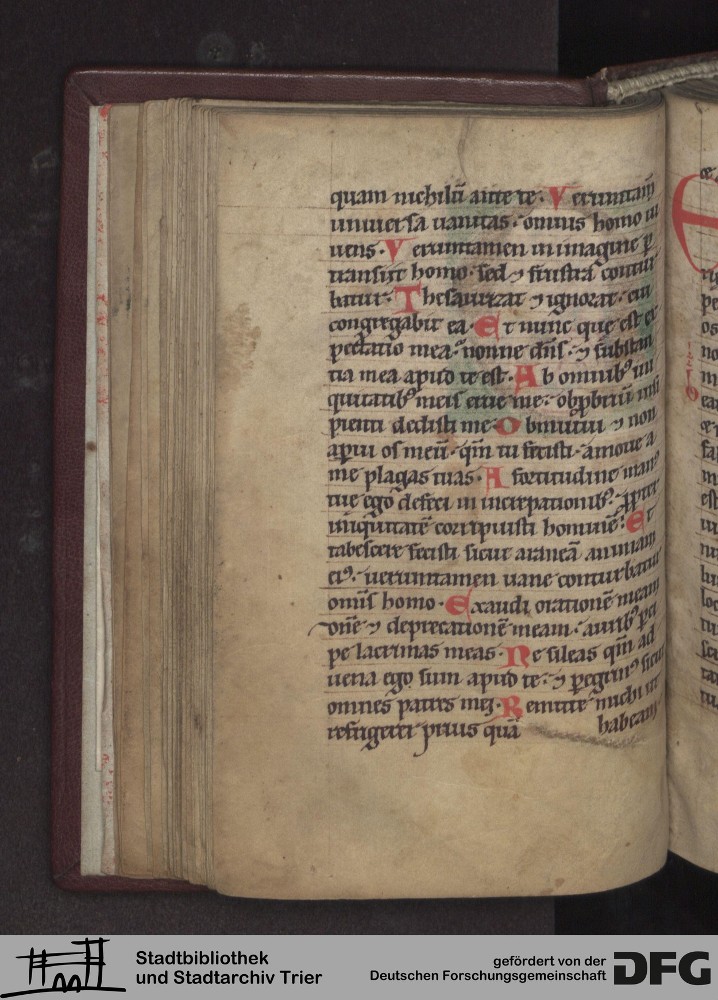 quam nichilū ante te. Veruntam̄
uniuersa uanitas. omnis homo ui
uens. Veruntamen in imagine p̄
transit homo. sed ⁊ frustra contur
batur. Thesaurizat ⁊ ignorat. cui
congregabit ea. Et nunc que est ex
pectatio mea. nonne dn̄s. ⁊ substan
tia mea apud te est. Ab omnibꝰ ini
quitatibꝰ meis erue me. obprobriū insi
pienti dedisti me. Obmutui ⁊ non
aperui os meū. qm̄ tu fecisti. amoue a
me plagas tuas. A fortitudine manꝰ
tue ego defeci in increpationibꝰ. propter
iniquitatē corripuisti hominē. Et
tabescere fecisti sicut araneā animam
eiꝰ. ueruntamen uane conturbatur
omīs homo. Exaudi orationē meam
dn̄e ⁊ deprecationē meam. auribꝰ ꝑci
pe lacrimas meas. Ne sileas qm̄ ad
uena ego sum apud te. ⁊ ꝑegrinꝰ sicut
omnes patres mei. Remitte michi ut
refrigerer prius quā habeam
Stadtbibliothek
und Stadtarchiv Trier
gefördert von der
Deutschen Forschungsgemeinschaft
DFG